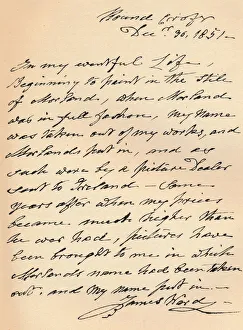 Round Croft
Decr 30, 1851 -
In my eventful Life,
Beginning to paint in the Stile
of Morland, when Morland
was in full fashon, my Name
was taken out of my works, and
Morlands put in, and as
such were by a picture Dealer
sent to Ireland - Some
years after when my prices
became much higher than
he was had, pictures have
been brought to me in which
Morlands name had been taken
out. and my name put in. -
James Ward